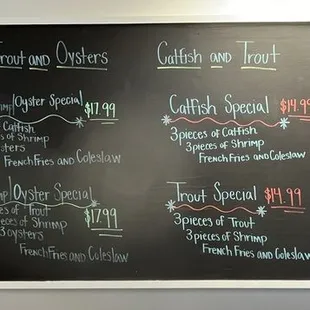 Trout and Oysters
Oyster Special $17.99
Catfish
of Shrimp
French Fries and Coleslaw
Oyster Special
$17.99
of Trout
of Shrimp
3 oysters
French Fries and Coleslaw
Catfish and Trout
Catfish Special $14.99
3 pieces of Catfish
3 pieces of Shrimp
French Fries and Coleslaw
Trout Special $14.99
3 pieces of Trout
3 pieces of Shrimp
French Fries and Coleslaw